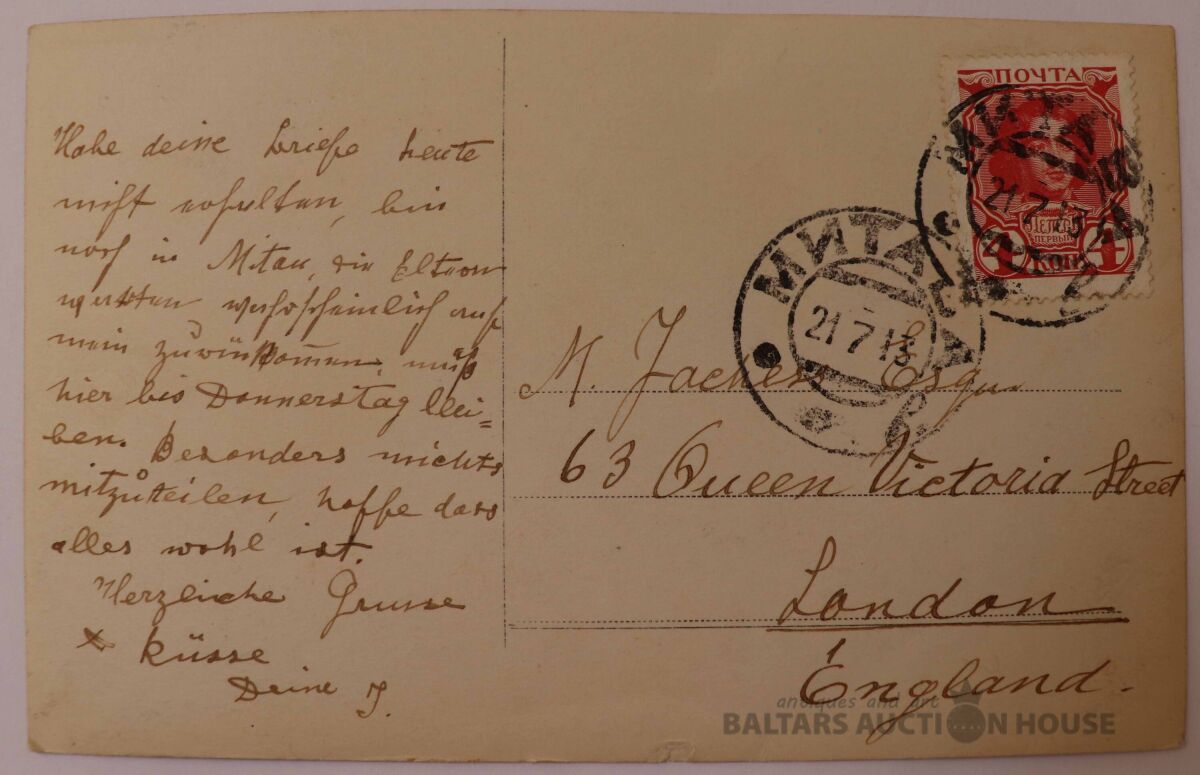 Habe deine Briefe heute
nicht erhalten, bin
noch in Mitau, die Eltern
werden wahrscheinlich auf
mein kommen, muß
hier bis Donnerstag blei=
ben. Besonders nichts
mitzuteilen, hoffe dass
alles wohl ist.
Herzliche Grusse
+ küsse
Deine J.
ПОЧТА
ПЕТРЪ
ПЕРВЫЙ
4 КОП 4
МИТАВА
21 7 13
МИТАВА
21 7 13
M. Esqr
63 Queen Victoria Street
London
England.
antiques and art
BALTARS AUCTION HOUSE